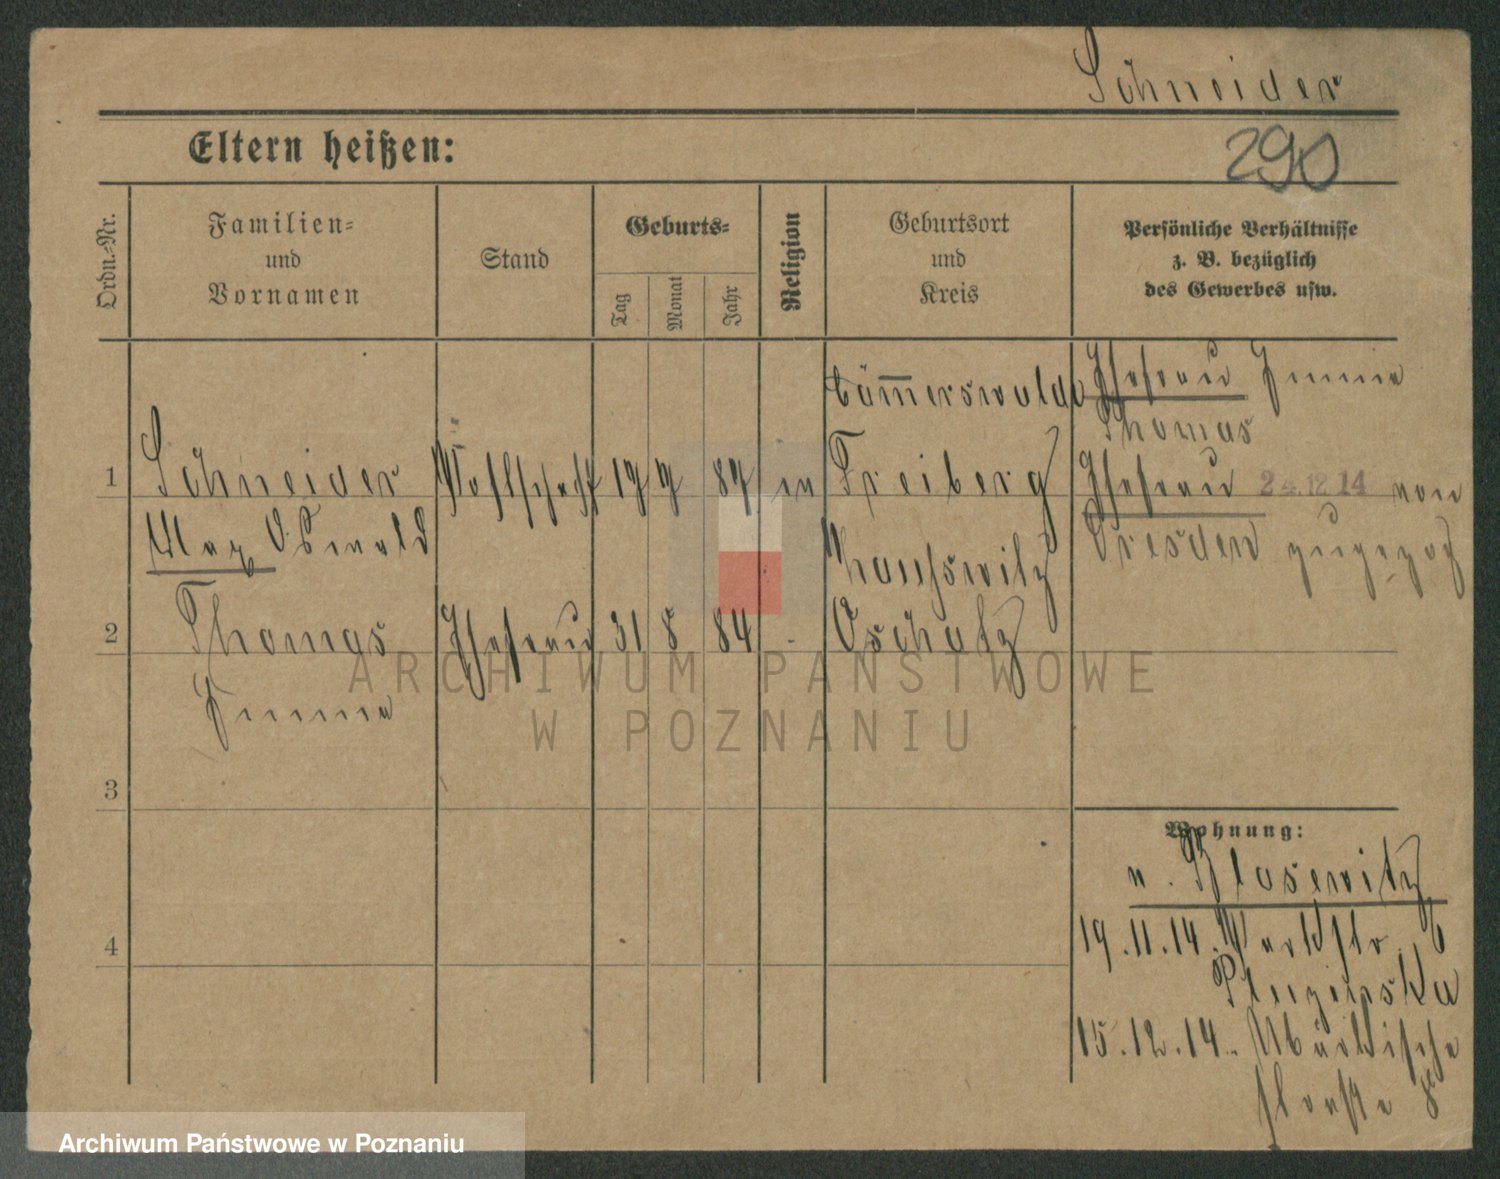 Schneider
290
Eltern heißen:
Ordn.-Nr.
Familien-
und
Vornamen
Stand
Geburts-
Tag
Monat
Jahr
Religion
Geburtsort
und
Kreis
Persönliche Verhältnisse
z. B. bezüglich
des Gewerbes usw.
1
Schneider
Max Oswald
87
Freiberg
Ehefrau Emma
Thomas
Ehefrau 24.12.14 von
Dresden zugezog
2
Thomas
Emma
Ehefrau
31
8
84
Oschatz
3
4
Wohnung:
v. Blasewitz
19.11.14. 6
15.12.14. Märkische
straße 8
ARCHIWUM PAŃSTWOWE
W POZNANIU
Archiwum Państwowe w Poznaniu